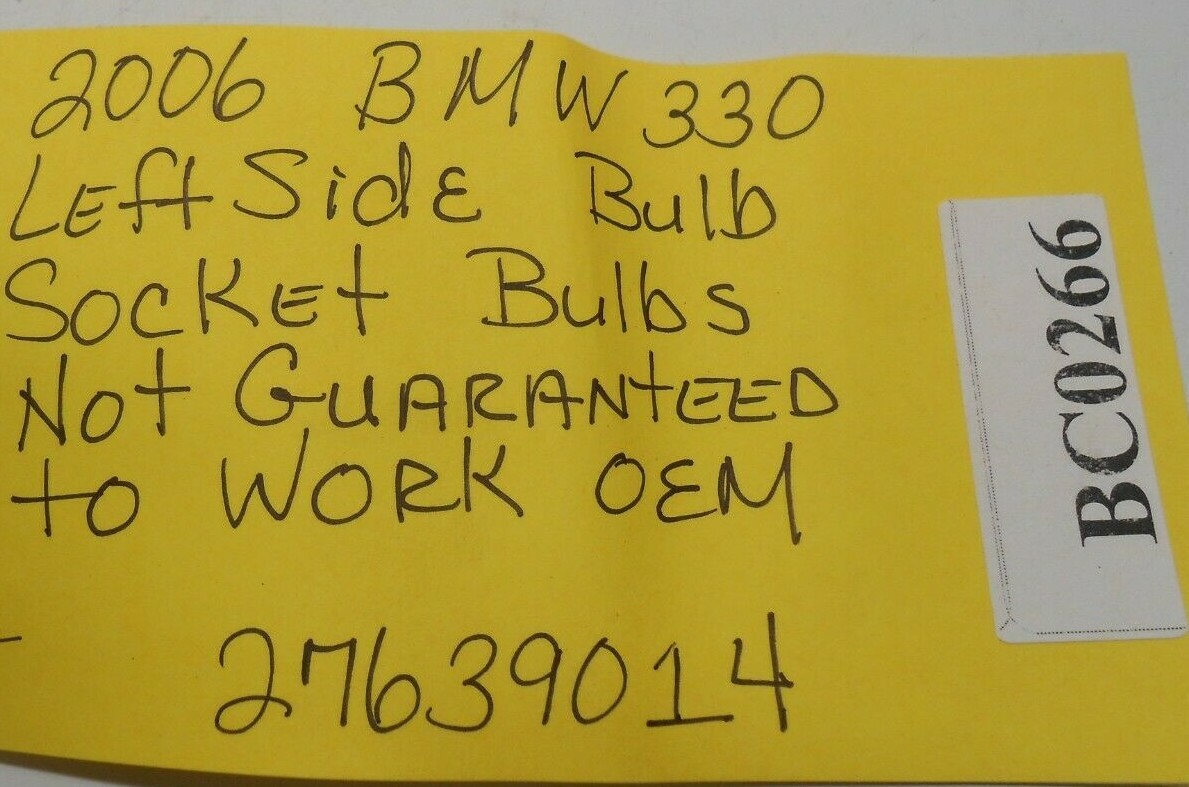 2006 BMW 330
LEft SidE Bulb
SocKEt Bulbs
Not GUARANtEED
to WORK OEM
27639014
BC0266